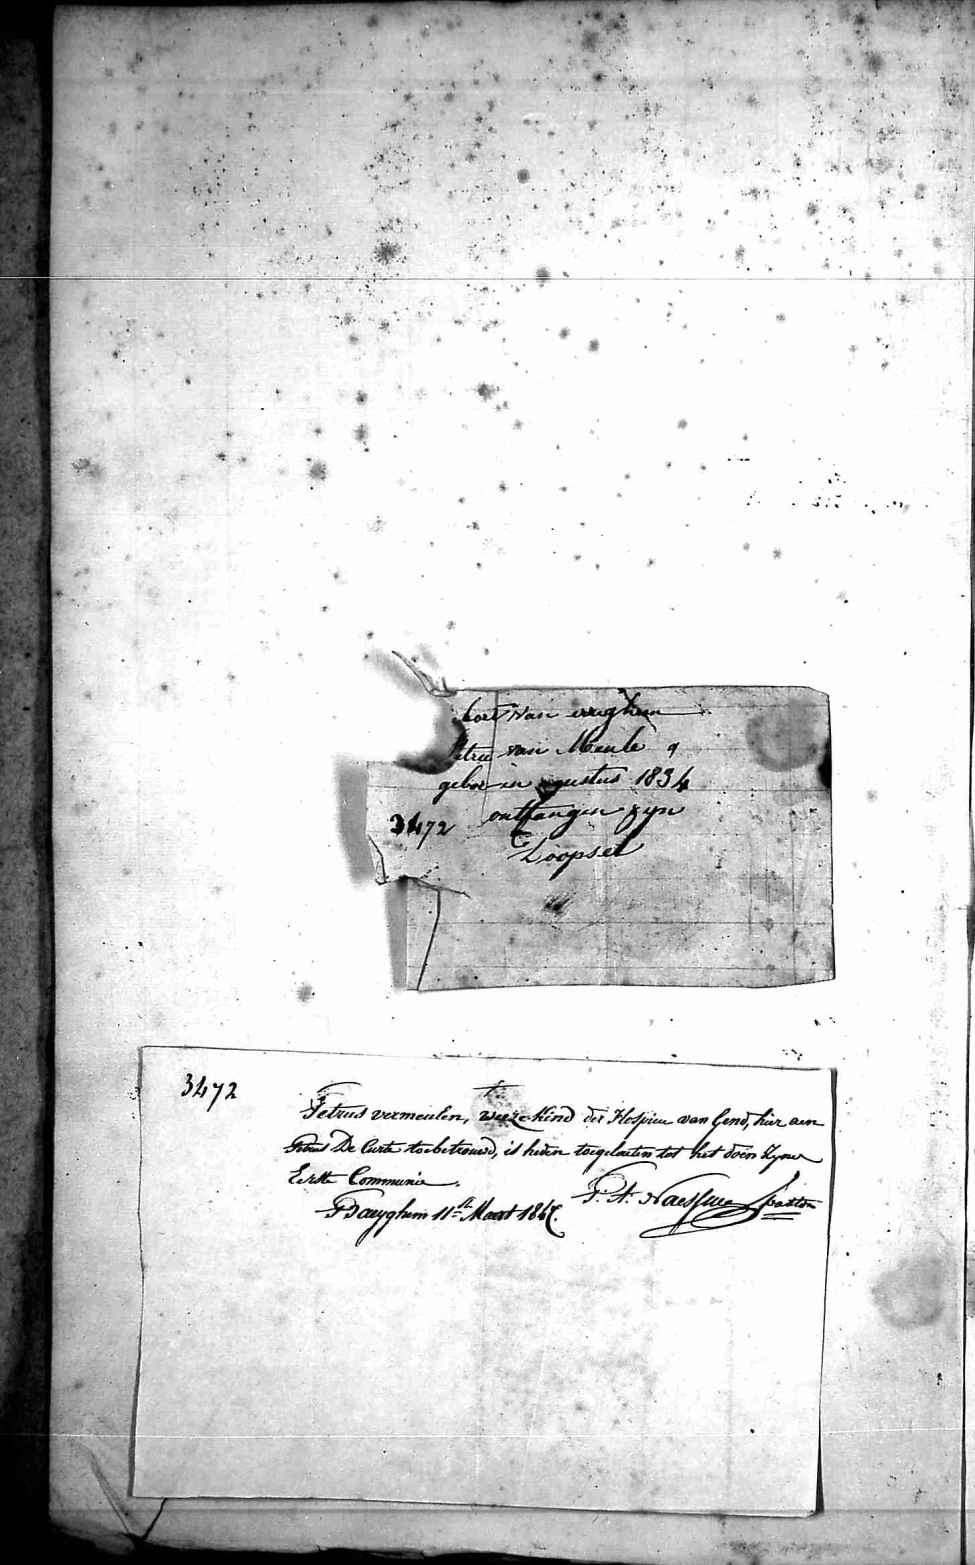 van
van Meule
gebor in gustus 1834
3472 ontfangen zyn
Loopsel
3472
Petrus vermeulen, weeze-kind der Hospicen van Gend, hier aen
Petrus De Curte toebetrouwd, is heden toegelaeten tot het doen zyner
Eerste Communie.
P. A. Naessens pastor
Baeyghem 11st Maert 1847.